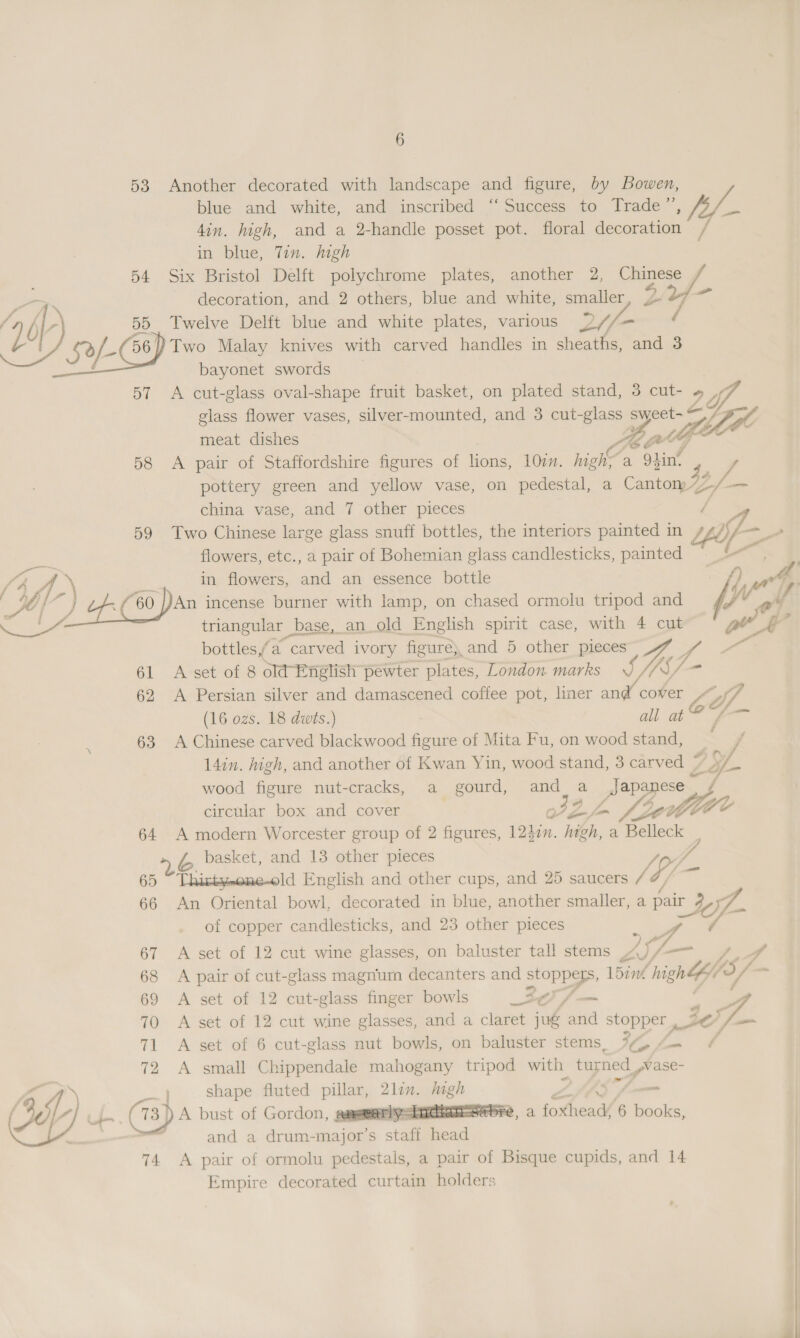 6
53 Another decorated with landscape and figure, by Bowen,
blue and white, and inscribed “Success to Trade”,
4in. high, and a 2-handle posset pot. floral decoration
in blue, 7in. high
54 Six Bristol Delft polychrome plates, another 2, Chinese
decoration, and 2 others, blue and white, smaller,
55 Twelve Delft blue and white plates, various
56 Two Malay knives with carved handles in sheaths, and 3
bayonet swords
57 A cut-glass oval-shape fruit basket, on plated stand, 3 cut-
glass flower vases, silver-mounted, and 3 cut-glass sweet-
meat dishes
58 A pair of Staffordshire figures of lions, 10in. high, a 9½in.
pottery green and yellow vase, on pedestal, a Canton
china vase, and 7 other pieces
59 Two Chinese large glass snuff bottles, the interiors painted in
flowers, etc., a pair of Bohemian glass candlesticks, painted
in flowers, and an essence bottle
60 An incense burner with lamp, on chased ormolu tripod and
triangular base, an old English spirit case, with 4 cut
bottles, a carved ivory figure, and 5 other pieces
61 A set of 8 old English pewter plates, London marks
62 A Persian silver and damascened coffee pot, liner and cover
(16 ozs. 18 dwts.) all at
63 A Chinese carved blackwood figure of Mita Fu, on wood stand,
14in. high, and another of Kwan Yin, wood stand, 3 carved
wood figure nut-cracks, a gourd, and a Japanese
circular box and cover
64 A modern Worcester group of 2 figures, 12½in. high, a Belleck
basket, and 13 other pieces
65 Thirty-one old English and other cups, and 25 saucers
66 An Oriental bowl, decorated in blue, another smaller, a pair
of copper candlesticks, and 23 other pieces
67 A set of 12 cut wine glasses, on baluster tall stems
68 A pair of cut-glass magnum decanters and stoppers, 15in. high
69 A set of 12 cut-glass finger bowls
70 A set of 12 cut wine glasses, and a claret jug and stopper
71 A set of 6 cut-glass nut bowls, on baluster stems
72 A small Chippendale mahogany tripod with turned vase-
shape fluted pillar, 21in. high
73 A bust of Gordon, an early Indian sabre, a foxhead, 6 books,
and a drum-major's staff head
74 A pair of ormolu pedestals, a pair of Bisque cupids, and 14
Empire decorated curtain holders